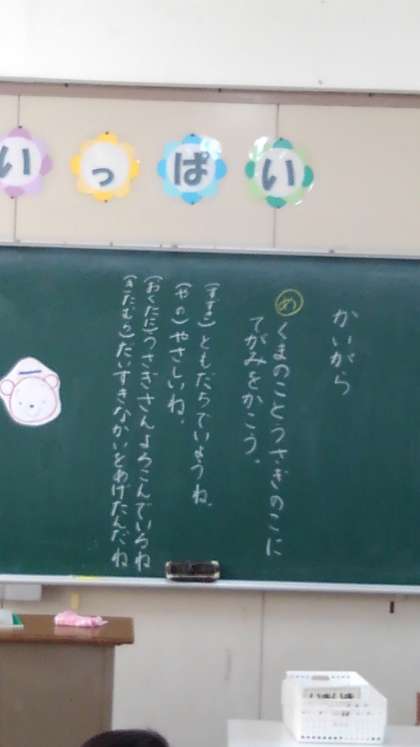 いっぱい
かいがら
め くまのことうさぎのこに
てがみをかこう。
(すずき)ともだちでいようね。
(やの)やさしいね。
(おくだに)うさぎさんよろこんでいるね
(きたむら)だいすきなかいをあげたんだね